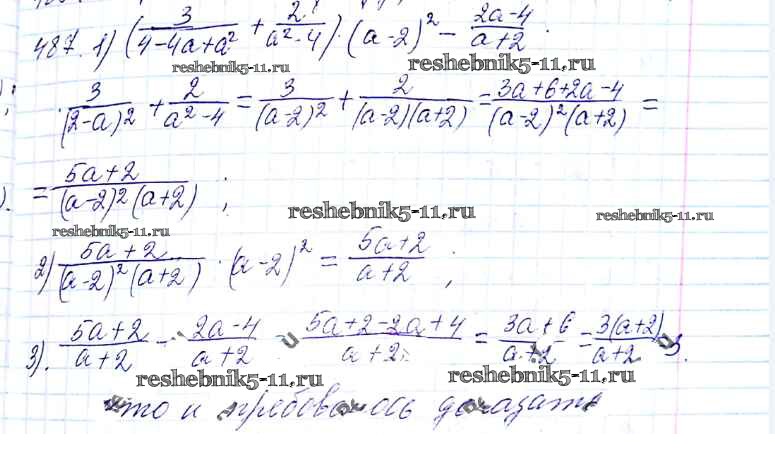 487. 1) (3/(4-4a+a²) + 2/(a²-4)) · (a-2)² - (2a-4)/(a+2).
reshebnik5-11.ru reshebnik5-11.ru
3/(2-a)² + 2/(a²-4) = 3/(a-2)² + 2/((a-2)(a+2)) = (3a+6+2a-4)/((a-2)²(a+2)) =
= (5a+2)/((a-2)²(a+2)) ;
reshebnik5-11.ru reshebnik5-11.ru
reshebnik5-11.ru
2) (5a+2)/((a-2)²(a+2)) · (a-2)² = (5a+2)/(a+2) ;
3). (5a+2)/(a+2) - (2a-4)/(a+2) = (5a+2-2a+4)/(a+2) = (3a+6)/(a+2) = 3(a+2)/(a+2) = 3.
reshebnik5-11.ru reshebnik5-11.ru
что и требовалось доказать